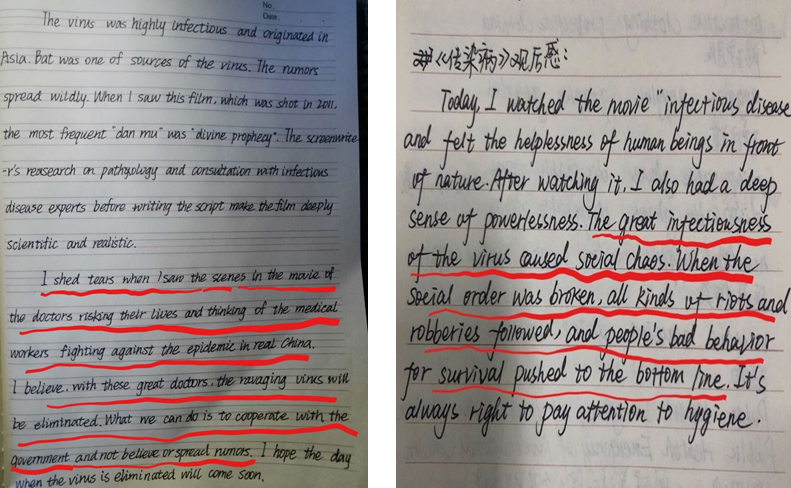 No.
Date.
The virus was highly infectious and originated in
Asia. Bat was one of sources of the virus. The rumors
spread wildly. When I saw this film, which was shot in 2011,
the most frequent "dan mu" was "divine prophecy". The screenwrite
-r's reasearch on pathyology and consultation with infectious
disease experts before writing the script make the film deeply
scientific and realistic.
I shed tears when I saw the scenes in the movie of
the doctors risking their lives and thinking of the medical
workers fighting against the epidemic in real China.
I believe, with these great doctors, the ravaging virus will
be eliminated. What we can do is to cooperate with the
government and not believe or spread rumors. I hope the day
when the virus is eliminated will come soon.
《传染病》观后感:
Today, I watched the movie "infectious disease
and felt the helplessness of human beings in front
of nature. After watching it, I also had a deep
sense of powerlessness. The great infectiousness
of the virus caused social chaos. When the
social order was broken, all kinds of riots and
robberies followed, and people's bad behavior
for survival pushed to the bottom line. It's
always right to pay attention to hygiene.